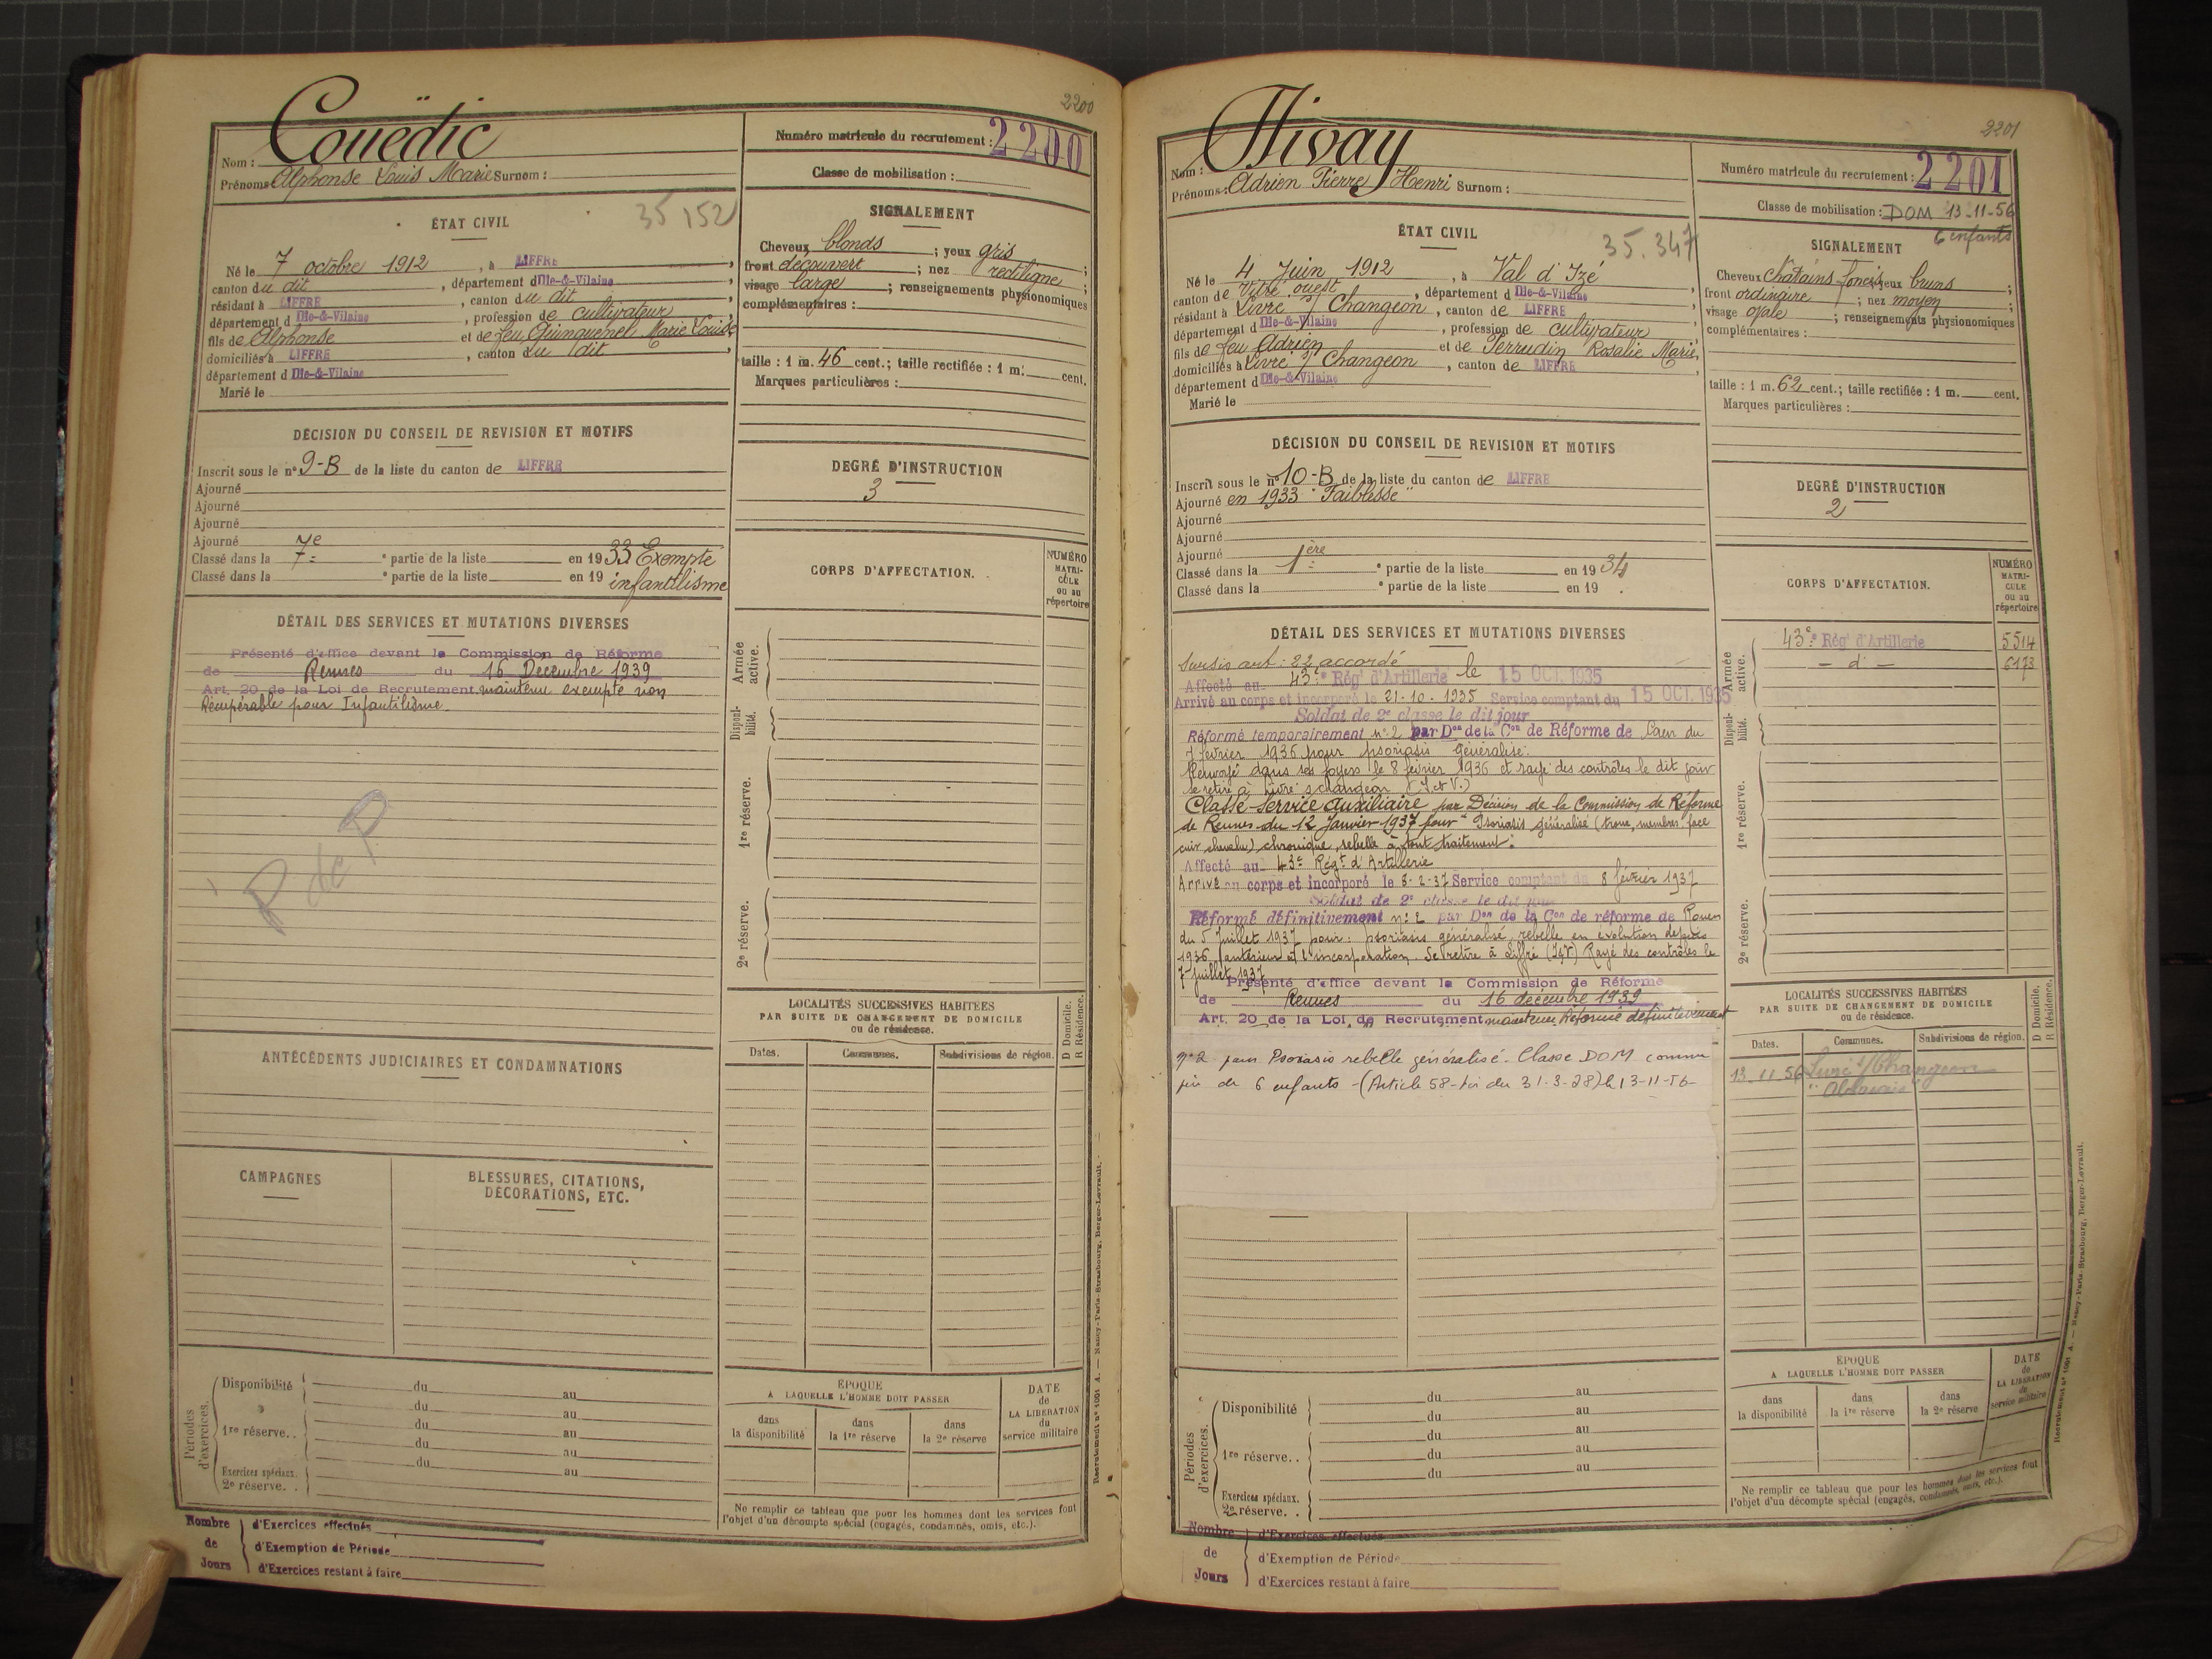 2200
Nom : Couëdic
Prénoms Alphonse Louis Marie Surnom :
Numéro matricule du recrutement : 2200
Classe de mobilisation :
ÉTAT CIVIL
35 152
Né le 7 octobre 1912, à LIFFRE,
canton du dit, département d Ille-&-Vilaine
résidant à LIFFRE, canton du dit,
département d Ille-&-Vilaine, profession de cultivateur
fils de Alphonse et de feu Quinquenel Marie Louise
domiciliés à LIFFRE, canton du dit,
département d Ille-&-Vilaine
Marié le
SIGNALEMENT
Cheveux blonds ; yeux gris ;
front découvert ; nez rectiligne ;
visage large ; renseignements physionomiques
complémentaires :
taille : 1 m. 46 cent.; taille rectifiée : 1 m. cent.
Marques particulières :
DÉCISION DU CONSEIL DE REVISION ET MOTIFS
Inscrit sous le n° 9-B de la liste du canton de LIFFRE
Ajourné
Ajourné
Ajourné
Ajourné
Classé dans la 7e ° partie de la liste en 1933 Exempté
Classé dans la ° partie de la liste en 19 infantilisme
DEGRÉ D'INSTRUCTION
3
CORPS D'AFFECTATION.
NUMÉRO
MATRI-
CULE
ou au
répertoire
Armée active.
Disponi-bilité.
1re réserve.
2e réserve.
DÉTAIL DES SERVICES ET MUTATIONS DIVERSES
Présenté d'office devant la Commission de Réforme
de Rennes du 16 Decembre 1939
Art. 20 de la Loi de Recrutement maintenu exempté non
Récupérable pour Infantilisme.
R de R
LOCALITÉS SUCCESSIVES HABITÉES
PAR SUITE DE CHANGEMENT DE DOMICILE
ou de résidence.
Dates. Communes. Subdivisions de région. D Domicile. R Résidence.
ANTÉCÉDENTS JUDICIAIRES ET CONDAMNATIONS
CAMPAGNES
BLESSURES, CITATIONS,
DÉCORATIONS, ETC.
Périodes d'exercices.
Disponibilité du au
du au
1re réserve.. du au
du au
du au
Exercices spéciaux.
2e réserve. .
ÉPOQUE
A LAQUELLE L'HOMME DOIT PASSER
dans la disponibilité
dans la 1re réserve
dans la 2e réserve
DATE de LA LIBÉRATION du service militaire
Ne remplir ce tableau que pour les hommes dont les services font
l'objet d'un décompte spécial (engagés, condamnés, omis, etc.).
Nombre de Jours
d'Exercices effectués
d'Exemption de Période
d'Exercices restant à faire
Recrutement n° 1001 A. — Nancy-Paris-Strasbourg, Berger-Levrault.
2201
Nom : Hivay
Prénoms : Adrien Pierre Henri Surnom :
Numéro matricule du recrutement : 2201
Classe de mobilisation : DOM 13-11-56
6 enfants
ÉTAT CIVIL
35.347
Né le 4 Juin 1912, à Val d'Izé,
canton de Vitré ouest, département d Ille-&-Vilaine
résidant à Livré s/ Changeon, canton de LIFFRE
département d Ille-&-Vilaine, profession de cultivateur
fils de feu Adrien et de Perrudin Rosalie Marie,
domiciliés à Livré s/ Changeon, canton de LIFFRE
département d Ille-&-Vilaine
Marié le
SIGNALEMENT
Cheveux châtains foncés yeux bruns ;
front ordinaire ; nez moyen ;
visage ovale ; renseignements physionomiques
complémentaires :
taille : 1 m. 62 cent.; taille rectifiée : 1 m. cent.
Marques particulières :
DÉCISION DU CONSEIL DE REVISION ET MOTIFS
Inscrit sous le n° 10-B de la liste du canton de LIFFRE
Ajourné en 1933 "Faiblesse"
Ajourné
Ajourné
Ajourné
Classé dans la 1ère ° partie de la liste en 1934
Classé dans la ° partie de la liste en 19
DEGRÉ D'INSTRUCTION
2
CORPS D'AFFECTATION.
NUMÉRO
MATRI-
CULE
ou au
répertoire
Armée active.
43e Régt d'Artillerie 5514
— d — 6173
Disponi-bilité.
1re réserve.
2e réserve.
DÉTAIL DES SERVICES ET MUTATIONS DIVERSES
Sursis art: 22 accordé
Affecté au 43e Régt d'Artillerie le 15 OCT. 1935
Arrivé au corps et incorporé le 21-10-1935 Service comptant du 15 OCT. 1935
Soldat de 2e classe le dit jour
Réformé temporairement n° 2 par Don de la Con de Réforme de Caen du
7 février 1936 pour psoriasis généralisé.
Renvoyé dans ses foyers le 8 février 1936 et rayé des contrôles le dit jour
se retire à Livré s changeon (I. et V.)
Classé Service auxiliaire par Décision de la Commission de Réforme
de Rennes du 12 Janvier 1937 pour "Psoriasis généralisé (tronc, membres, face
cuir chevelu) chronique, rebelle à tout traitement."
Affecté au 43e Régt d'Artillerie
Arrivé au corps et incorporé le 8-2-37 Service comptant du 8 février 1937
Soldat de 2e classe le dit jour
Réformé définitivement n° 2 par Don de la Con de réforme de Rouen
du 5 Juillet 1937 pour: psoriasis généralisé, rebelle en évolution depuis
1936, antérieur à l'incorporation. Se retire à Liffré (I&V) Rayé des contrôles le
7 juillet 1937
Présenté d'office devant la Commission de Réforme
de Rennes du 16 decembre 1939
Art. 20 de la Loi de Recrutement maintenu Réformé définitivement
n° 2 pour Psoriasis rebelle généralisé. Classe DOM comme
père de 6 enfants - (Article 58 - loi du 31-3-28) le 13-11-56
LOCALITÉS SUCCESSIVES HABITÉES
PAR SUITE DE CHANGEMENT DE DOMICILE
ou de résidence.
Dates. Communes. Subdivisions de région. D Domicile. R Résidence.
13-11-56 Livré s/ Changeon
Périodes d'exercices.
Disponibilité du au
du au
1re réserve.. du au
du au
du au
Exercices spéciaux.
2e réserve. .
ÉPOQUE
A LAQUELLE L'HOMME DOIT PASSER
dans la disponibilité
dans la 1re réserve
dans la 2e réserve
DATE de LA LIBÉRATION du service militaire
Ne remplir ce tableau que pour les hommes dont les services font
l'objet d'un décompte spécial (engagés, condamnés, omis, etc.).
Nombre de Jours
d'Exercices effectués
d'Exemption de Période
d'Exercices restant à faire
Recrutement n° 1001 A. — Nancy-Paris-Strasbourg, Berger-Levrault.